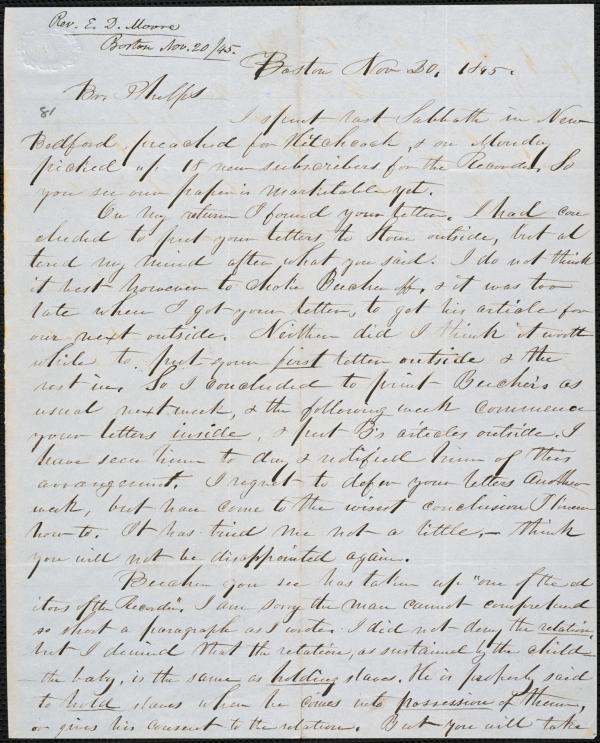 Rev. E. D. Moore
Boston Nov. 20/45.
Boston Nov 20, 1845.
81
Bro Phelps
I spent last Sabbath in New
Bedford, preached for Hitchcock, & on Monday
picked up 18 new subscribers for the Recorder. So
you see our paper is marketable yet.
On my return I found your letter. I had con
cluded to put your letters to Stow outside, but al
tered my mind after what you said. I do not think
it best however to choke Beecher off, & it was too
late when I got your letter, to get his article for
our next outside. Neither did I think it worth
while to put your first letter outside & the
rest in. So I concluded to print Beecher's as
usual next week, & the following week commence
your letters inside, & put B's articles outside. I
have seen him to day & notified him of this
arrangement. I regret to defer your letters another
week, but have come to the wisest conclusion I knew
how to. It has tried me not a little, – think
you will not be disappointed again.
Beecher you see has taken up "one of the ed
itors of the Recorder". I am sorry the man cannot comprehend
so short a paragraph as I wrote. I did not deny the relation,
but I denied that the relation, as sustained by the child
– the baby, is the same as holding slaves. He is properly said
to hold slaves when he comes into possession of them,
or gives his consent to the relation. But you will take